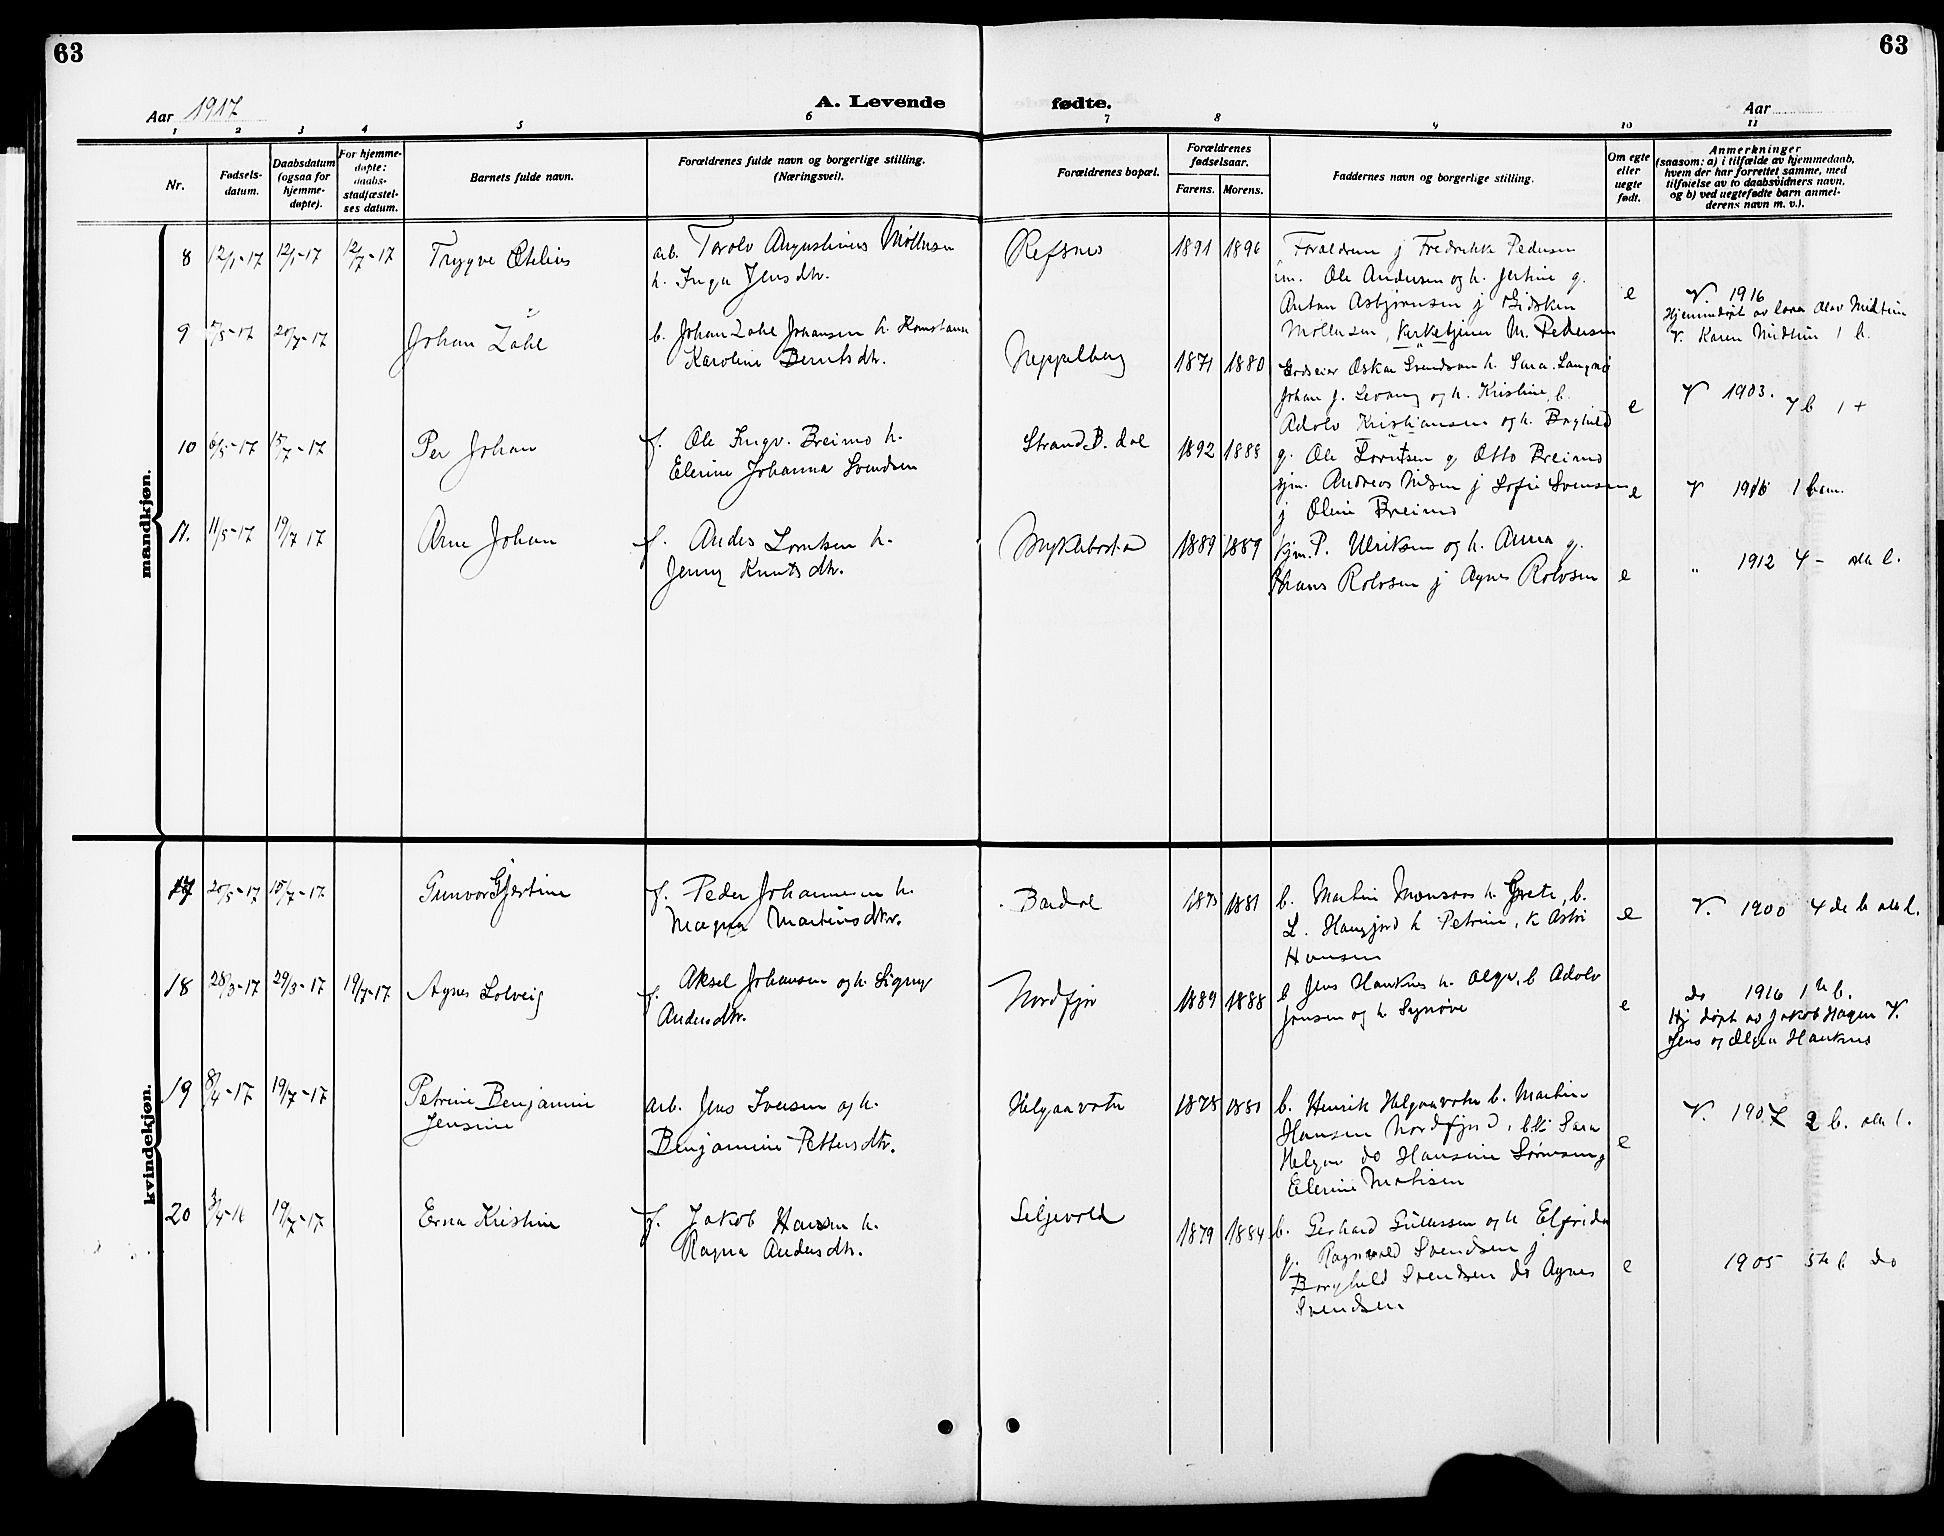 63
63
Aar 1917
A. Levende fødte.
Aar
1 2 3 4 5 6 7 8 9 10 11
Nr.
Fødsels-
datum.
Daabsdatum
(ogsaa for
hjemme-
døpte).
For hjemme-
døpte:
daabs-
stadfæstel-
ses datum.
Barnets fulde navn.
Forældrenes fulde navn og borgerlige stilling.
(Næringsvei).
Forældrenes bopæl.
Forældrenes
fødselsaar.
Farens. Morens.
Faddernes navn og borgerlige stilling.
Om egte
eller
uegte
født.
Anmerkninger
(saasom: a) i tilfælde av hjemmedaab,
hvem der har forrettet samme, med
tilføielse av to daabsvidners navn,
og b) ved uegtefødte barn anmel-
derens navn m. v.).
mandkjøn.
8 12/1-17 12/1-17 12/7-17 Trygve Otelius
arb. Torolv Augustinus Møllersen
h. Inga Jensdtr.
Refsnes 1891 1896
Forældrene j Fredrikke Pedersen
Ole Andersen og h. Jertine g.
Anton Asbjørnsen j Gidsken
Møllersen, Kirketjener M. Pedersen
e
V. 1916
Hjemmedøpt av lærer Olav Midttun
V. Karen Midttun 1 b.
9 /5-17 20/7-17 Johan Zahl
b. Johan Zahl Johansen h. Konstanse
Karoline Berntsdtr.
Neppelberg 1871 1880
Godseier Oskar Svendsen h. Sara Langnes
Johan j. Levang og h. Kristine, b.
Adolv Kristiansen og h. Borghild
e
V 1903. 7 b 1 +
10 6/5-17 15/7-17 Per Johan
f. Ole Ingv. Breimo h.
Elerine Johanna Svendsen
Strand B. dal 1892 1888
g. Ole Lorntsen g Otto Breimo
sjm. Andreas Nilsen j Sofie Svensen
j Oline Breimo
e
V 1916 1 b
11. 11/5-17 19/7 17 Arne Johan
f. Anders Lorntsen h.
Jenny Knutsdtr.
Myklebostad 1889 1889
kjm. P. Ulriksen og h. Anna g.
Johans Rolvsen j Agnes Rolvsen
e
" 1912 4 - alle l.
kvindekjøn.
17 20/5-17 15/7-17 Gunvor Gjertine
f. Peder Johannesen h.
Magna Martinsdtr.
Bardal 1875 1881
b. Martin Monsaas h. Grete, b.
L. Haugjord h Petrine, k Astri
Hansen
e
V. 1900 4 de b alle l.
18 28/3-17 29/3-17 19/7-17 Agnes Solveig
f. Aksel Johansen og h. Signy
Andersdtr.
Nordfjor 1889 1888
b Jens Hauknes h. Olga, b Adolv
Jensen og h Synøve
e
do 1916 1 b.
Hj døpt av Jakob Hagen V.
Jens og Olga Hauknes
19 8/4-17 19/7-17 Petrine Benjamine
Jensine
arb. Jens Iversen og h.
Benjamine Pettersdtr.
Helgaavatn 1878 1880
b. Henrik Helgaavatn b. Martin
Hansen Nordfjord, Sara
Helgaa do Hansine Sørensen j
Elerine Matisen
e
V. 1907 2 b. alle l.
20 3/4-16 19/7-17 Erna Kristine
f. Jakob Hansen h.
Ragna Andersdtr.
Seljevold 1879 1884
b. Gerhard Gullessen og h Elfrida
g. Ragnvald Svendsen j
Borghild Svendsen do Agnes
Svendsen
e
1905 5te b do